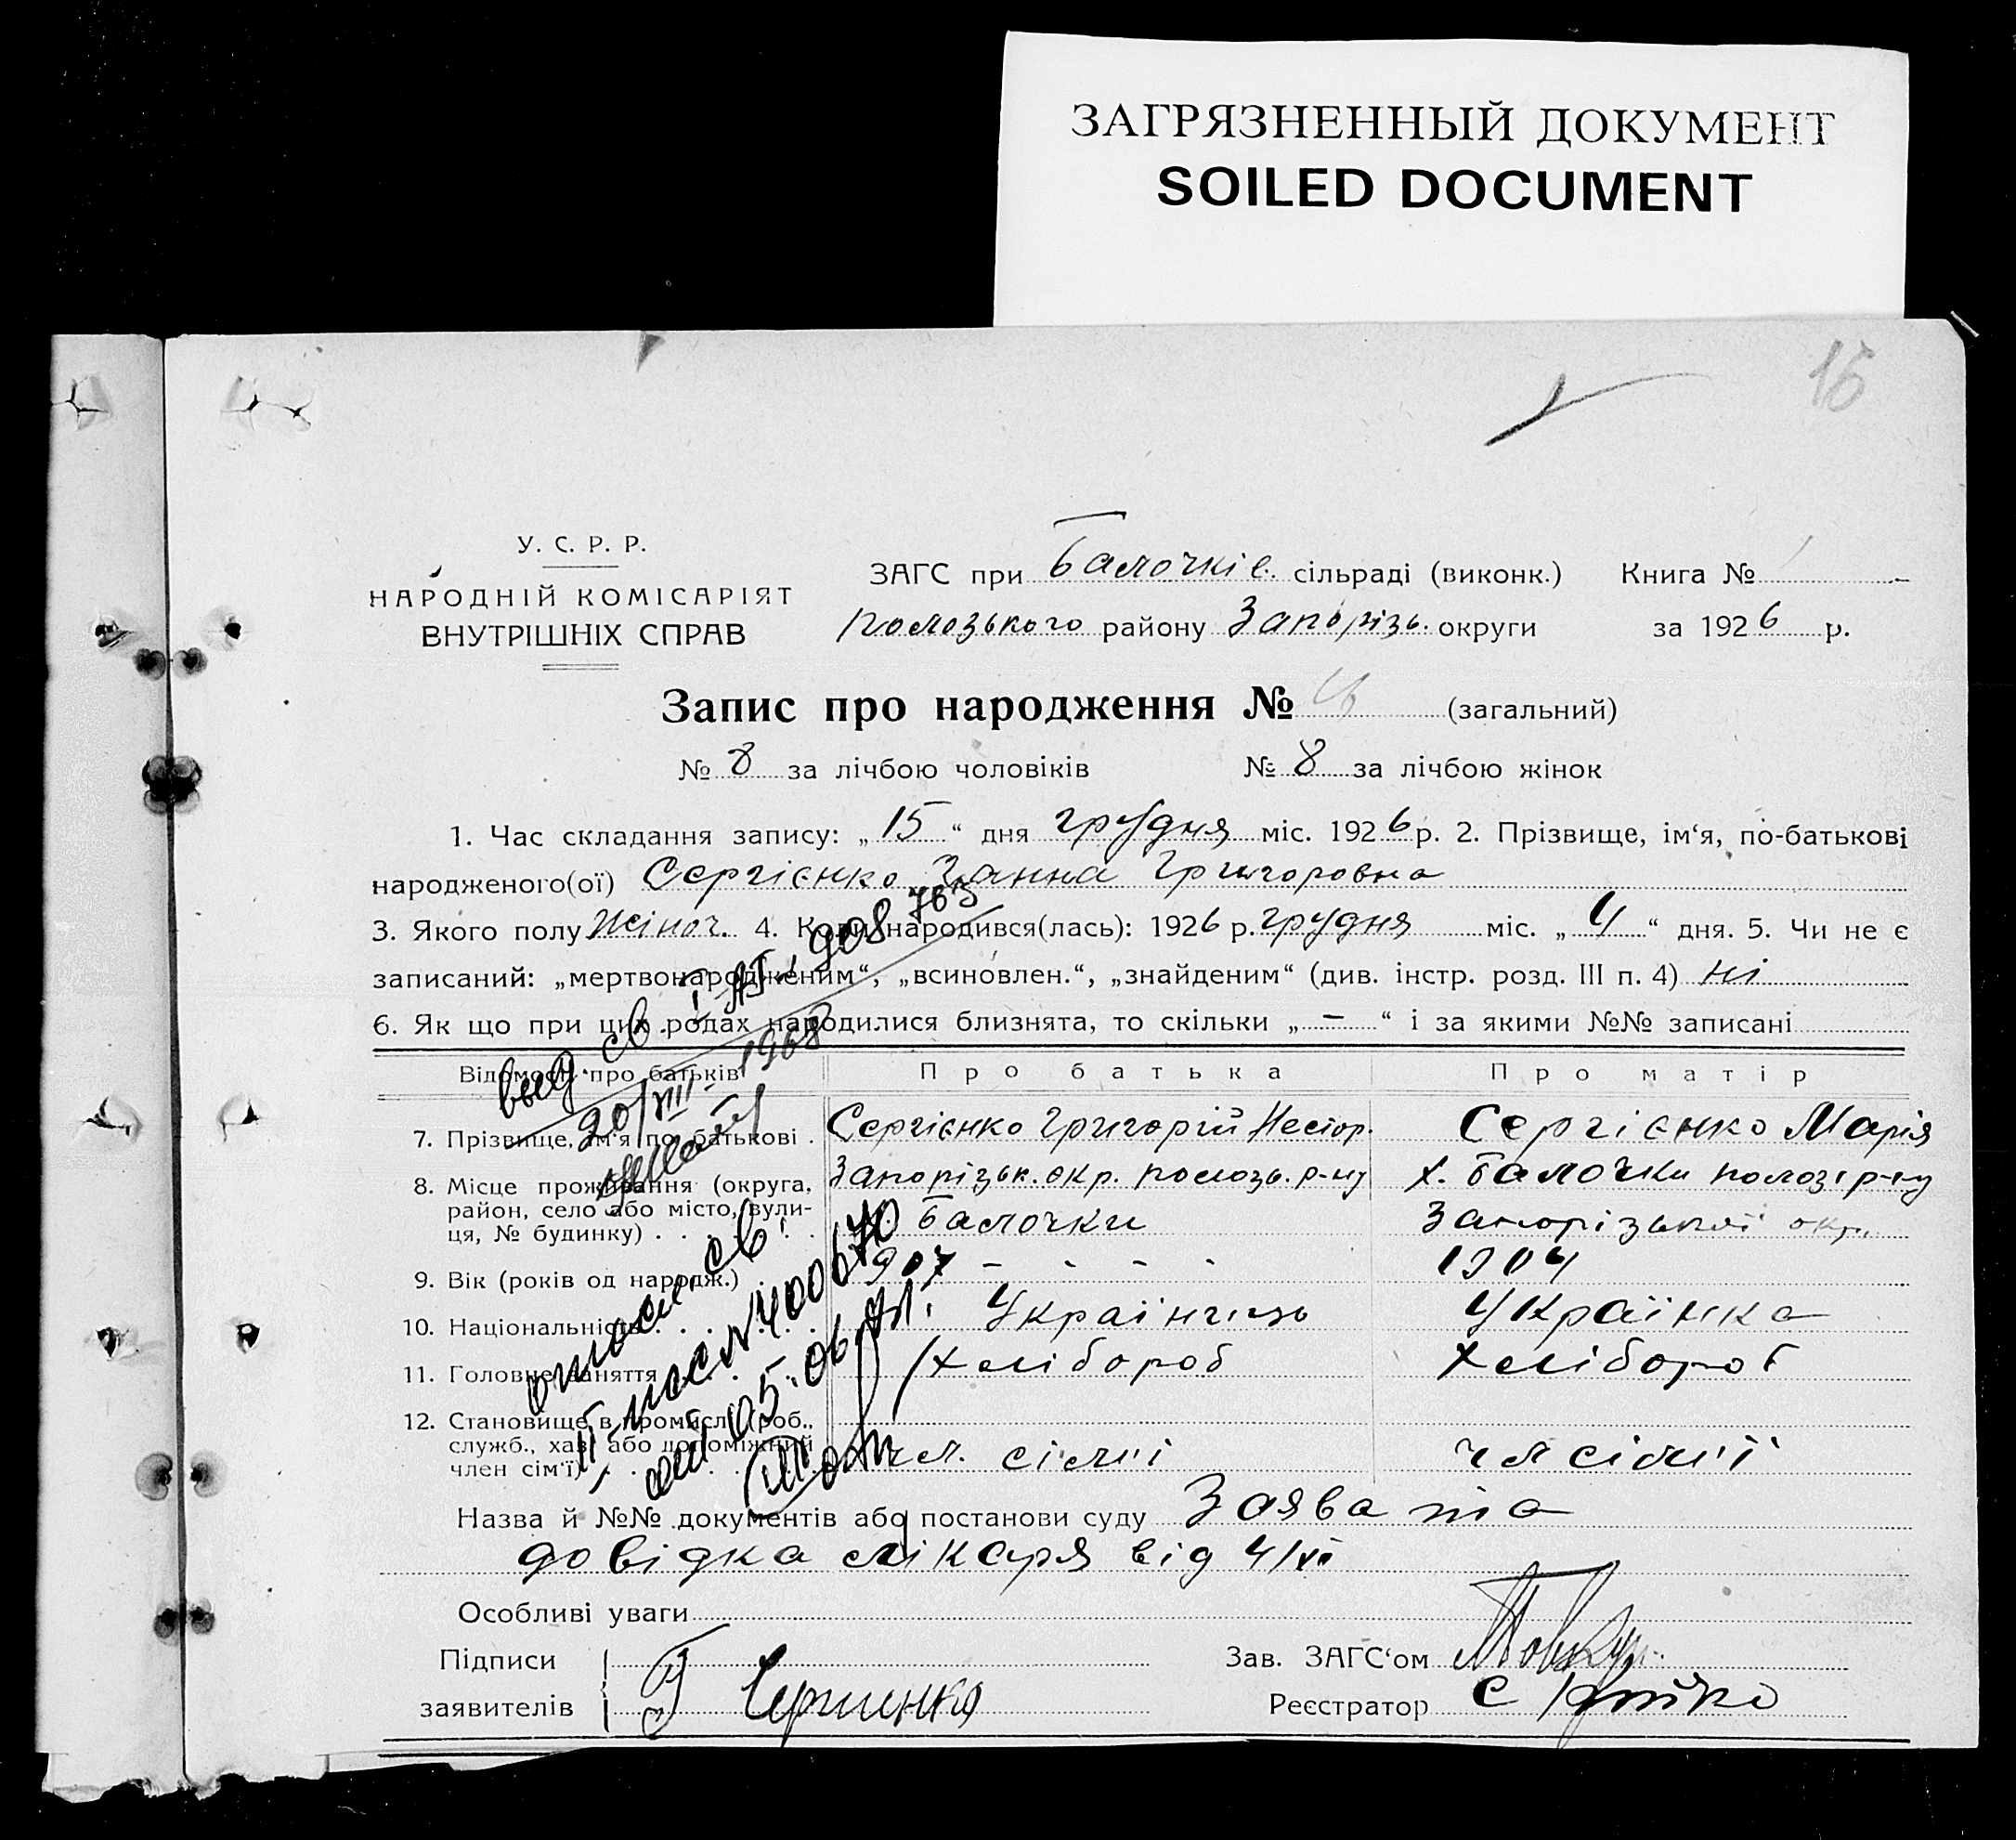 ЗАГРЯЗНЕННЫЙ ДОКУМЕНТ
SOILED DOCUMENT
15
У. С. Р. Р.
НАРОДНІЙ КОМІСАРІЯТ
ВНУТРІШНІХ СПРАВ
ЗАГС при Балочків. сільраді (виконк.) Книга №
Полозького району Запорізь. округи за 1926 р.
Запис про народження № (загальний)
№ 8 за лічбою чоловіків № 8 за лічбою жінок
1. Час складання запису: „ 15 “ дня грудня міс. 1926 р. 2. Прізвище, ім‘я, по-батькові
народженого(ої) Сергієнко Ганна Григоровна
3. Якого полу жіноч. 4. Коли народився(лась): 1926 р. грудня міс. „ 4 “ дня. 5. Чи не є
записаний: „мертвонародженим“, „всиновлен.“, „знайденим“ (див. інстр. розд. III п. 4) ні
6. Як що при цих родах народилися близнята, то скільки „ – “ і за якими №№ записані
Відомості про батьків Про батька Про матір
7. Прізвище, ім‘я по батькові . Сергієнко Григорій Нестор. Сергієнко Марія
8. Місце проживання (округа, район, село або місто, вулиця, № будинку) . . . . . .
Запорізьк. окр. полозь. р-ну х. Балочки полозі р-ну
Балочки Запорізької окр.
9. Вік (років од народж.) 907 - - - - 1904
10. Національність . . . . . Українець Українка
11. Головне заняття . . . . Хлібороб Хлібороб
12. Становище в промислі (роб., служб., хаз. або допоміжний член сім‘ї) . . . . . .
чл. сімї чл сімї
Назва й №№ документів або постанови суду Заява та
довідка лікаря від 4/XI
Особливі уваги
Підписи заявителів
Г Сергиенко
Зав. ЗАГС‘ом
Реєстратор С
выд. св. I-АП 908 765
20/VIII-1968
св.
II-№ 400670
от 05.06.71.